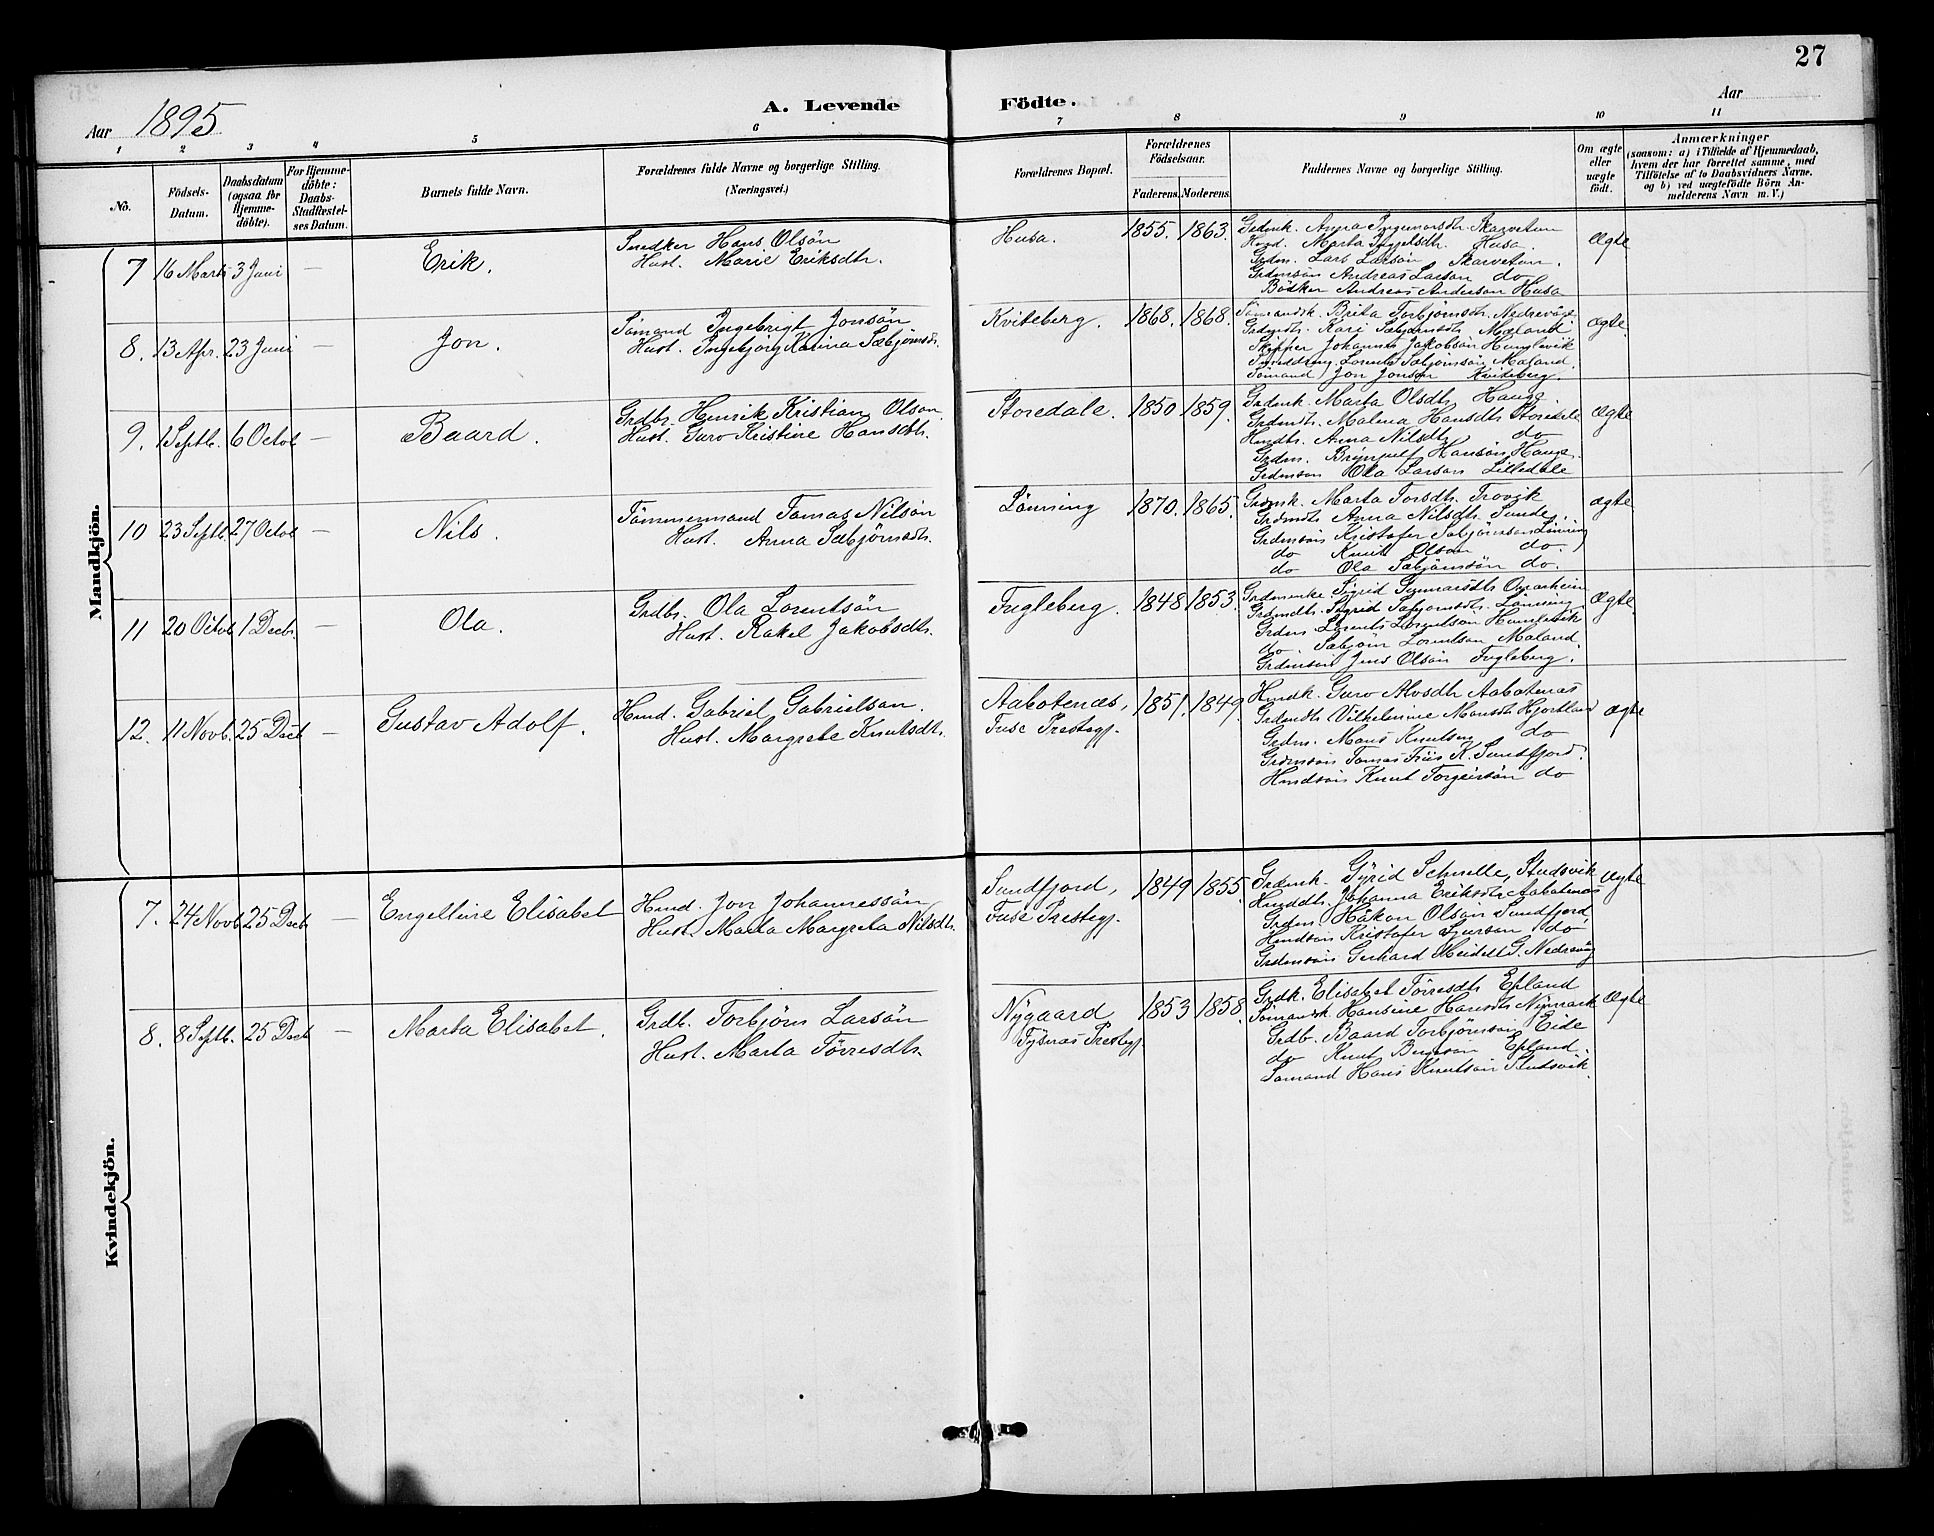 27
Aar 1895
A. Levende Födte.
Aar
1 2 3 4 5 6 7 8 9 10 11
No.
Födsels-Datum.
Daabsdatum (ogsaa for Hjemme-döbte).
For Hjemme-döbte: Daabs-Stadfæstel-ses Datum.
Barnets fulde Navn.
Forældrenes fulde Navne og borgerlige Stilling. (Næringsvei.)
Forældrenes Bopæl.
Forældrenes Födselsaar.
Faderens. Moderens.
Faddernes Navne og borgerlige Stilling.
Om ægte eller uægte födt.
Anmærkninger
(saasom: a) i Tilfælde af Hjemmedaab,
hvem der har forrettet samme, med
Tilföielse af to Daabsvidners Navne.
og b) ved uægtefödte Börn An-
melderens Navn m. V.)
Mandkjön.
7 16 Marts 3 Juni — Erik.
Snedker Hans Olsön
Hust. Marie Eriksdtr.
Husa. 1855. 1863.
Grdmk. Anna Ingemarsdtr. Skarveton
Hmd. Marta Husa.
Grdm. Lars Larsön Skarveton.
Grdmsön Andreas Larson do
Bödker Andreas Anderson Husa
Ægte
8. 13 Apr. 23 Juni — Jon.
Sömand Ingebrigt Jonsön
Hust. Ingebjörg Karina Sæbjörnsdt.
Kviteberg. 1868. 1868.
Sömandsk. Brita Torbjörnsdtr. Nedrevåge
Grdmdtr. Kari Sæbjörnsdtr Mæland
Skipper Johannes Jakobsön Hunglevik
Lorents Sæbjörnsön Mæland.
Sömand Jon Jonsön Kviteberg.
ægte
9. 1 Septb. 6 Octob — Baard.
Grdbr. Henrik Kristian Olson.
Hust. Guro Kristine Hansdtr.
Storedale. 1850 1859.
Grdmk. Marta Olsdtr Hauge.
Grdmdtr. Malena Hansdtr Storedale
Hmdtr. Anna Nilsdtr do
Grdm. Brynjulf Hansön Hauge.
Grdmson Ola Larson Lilledale
Ægte
10 23 Septb. 27 Octob — Nils.
Tömmermand Tomas Nilsön
Hust. Anna Sæbjörnsdtr.
Lönning 1870. 1865.
Grdmk. Marta Torsdtr. Trovik
Grdmdtr Anna Nilsdtr. Sunde.
Grdmsön Kristofer Sæbjörnson Lönning
do Knut Olson do.
do Ola Sæbjörnsön do.
ægte
11 20 Octob 1 Decb. — Ola.
Grdbr. Ola Lorentsön
Hust. Rakel Jakobsdtr.
Fugleberg. 1848 1853.
Grdmenke Sigrid Gunnarsdtr Opsarheim
Grdmdtr. Sigrid Sæbjörnsdtr. Lönning
Grdm Lorents Lorentsön Hunglevik
do. Sæbjörn Lorentson Mæland
Grdmsön Jens Olsön Fugleberg.
Ægte
12. 11 Novb. 25 Decb — Gustav Adolf.
Hmd. Gabriel Gabrielson.
Hust. Margrete Knutsdtr.
Aabotenæs,
Fuse Prestegj.
1851. 1849.
Hmdk. Guro Alvsdtr Aabotenæs
Grdmdtr. Vilhelmine Monsdtr Hjortland
Grdm. Mons Knutson do
Grdmsön Tomas Friis K. Sundfjord.
Hmdsön Knut Torgeirsön do
ægte
Kvindekjön.
7. 24 Novb 25 Decb — Engeline Elisabet
Hmd. Jon Johannessön
Hust. Marta Margreta Nilsdtr.
Sundfjord,
Fuse Prestegj.
1849 1855.
Grdmk. Gyrid Schnelle, Studsvik
Hmddtr. Johanna Eriksdtr Aabotenæs
Grdm. Håkon Olson Sundfjord,
Hmdsön Kristofer Sjurson do
Grdmsön Gerhard Meidell G. Nedrevåg
Ægte
8. 8 Septb. 25 Decb — Marta Elisabet.
Grdb. Torbjörn Larsön
Hust. Marta Törresdtr.
Nygaard
Tysnæs Prestegj.
1853 1858.
Grdk. Elisabet Törresdtr Epland
Sömandsk Hansine Hansdtr Nymark
Grdb. Baard Torbjörnson Eide
do Knut Bergeson Epland.
Sömand Hans Knutsön Studsvik.
Ægte